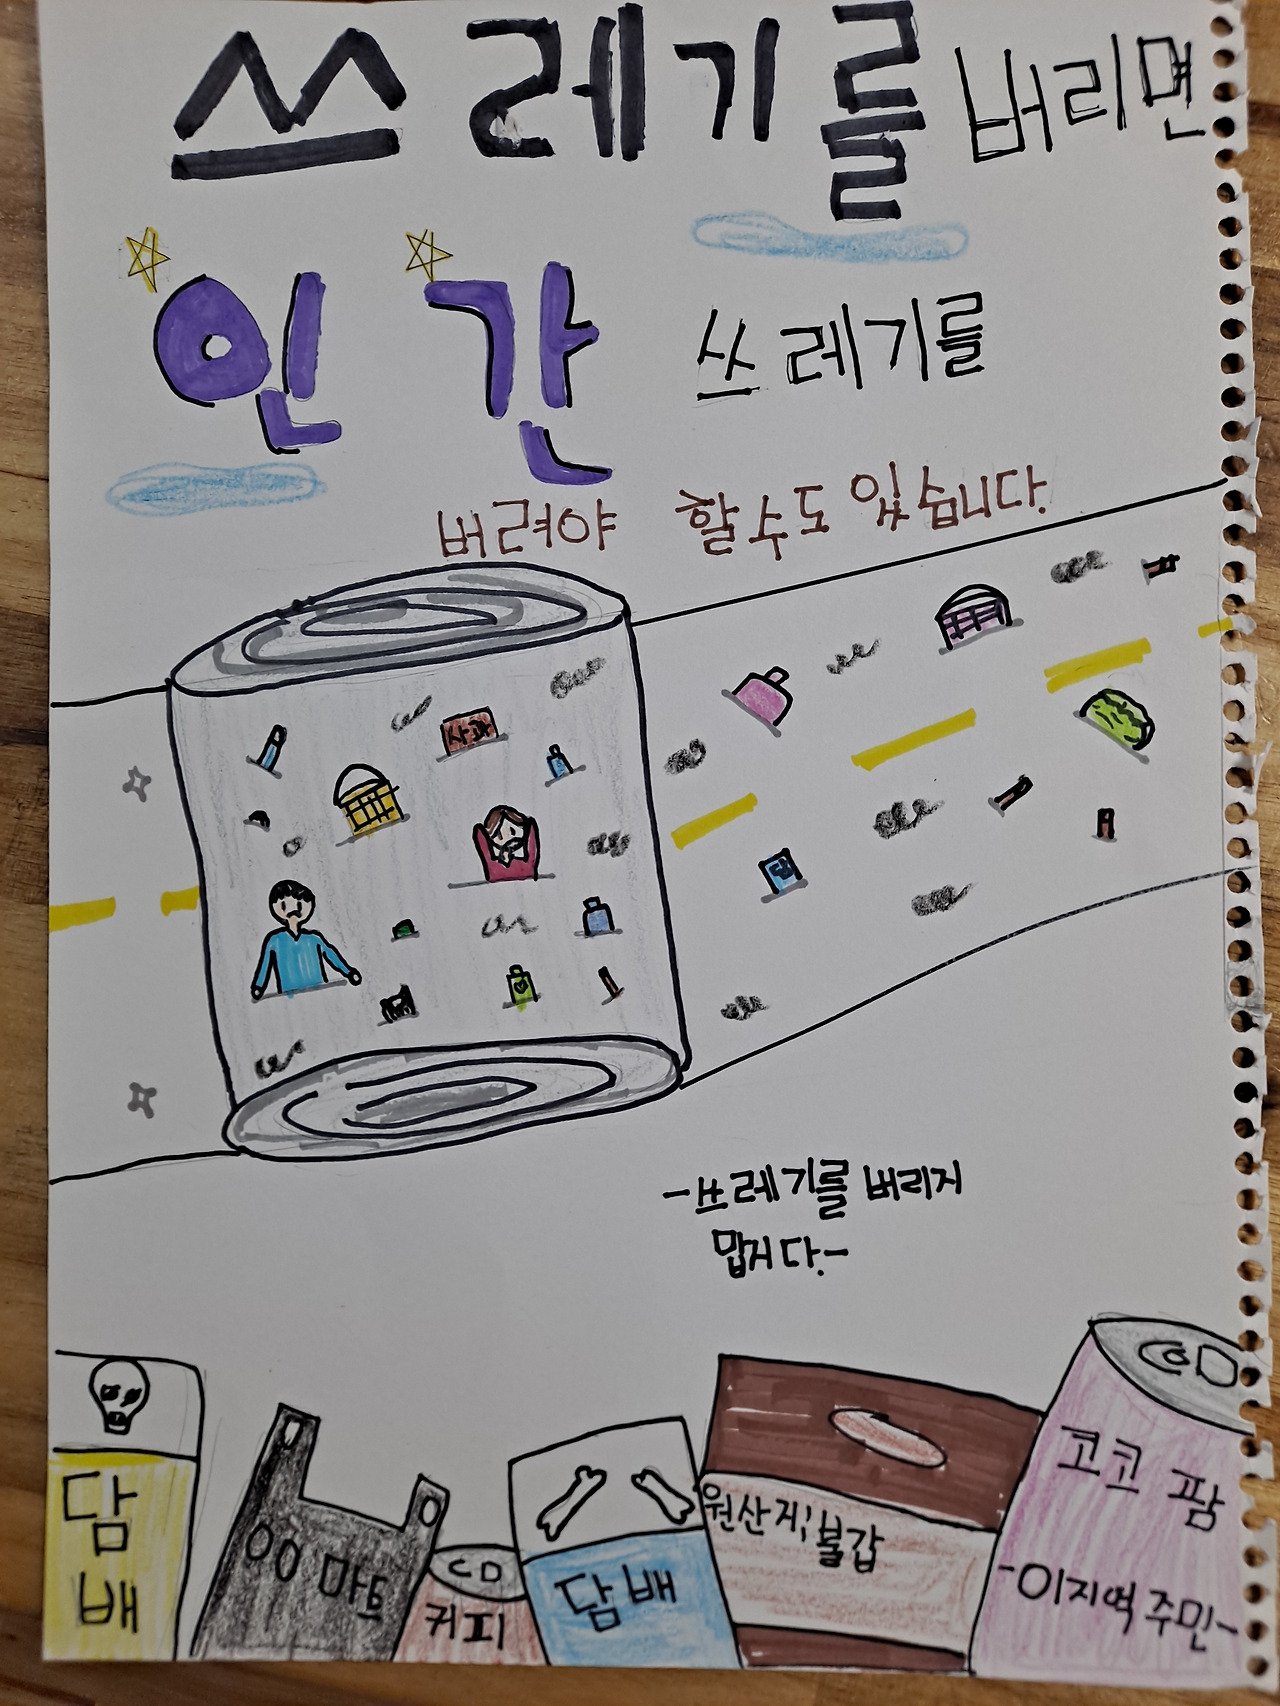 쓰레기를 버리면
인간 쓰레기를
버려야 할수도 있습니다.
사과
담
-쓰레기를 버리지
맙시다.-
담
배
OO 마트
커피
담배
원산지; 불갑
코코 팜
-이지역 주민-